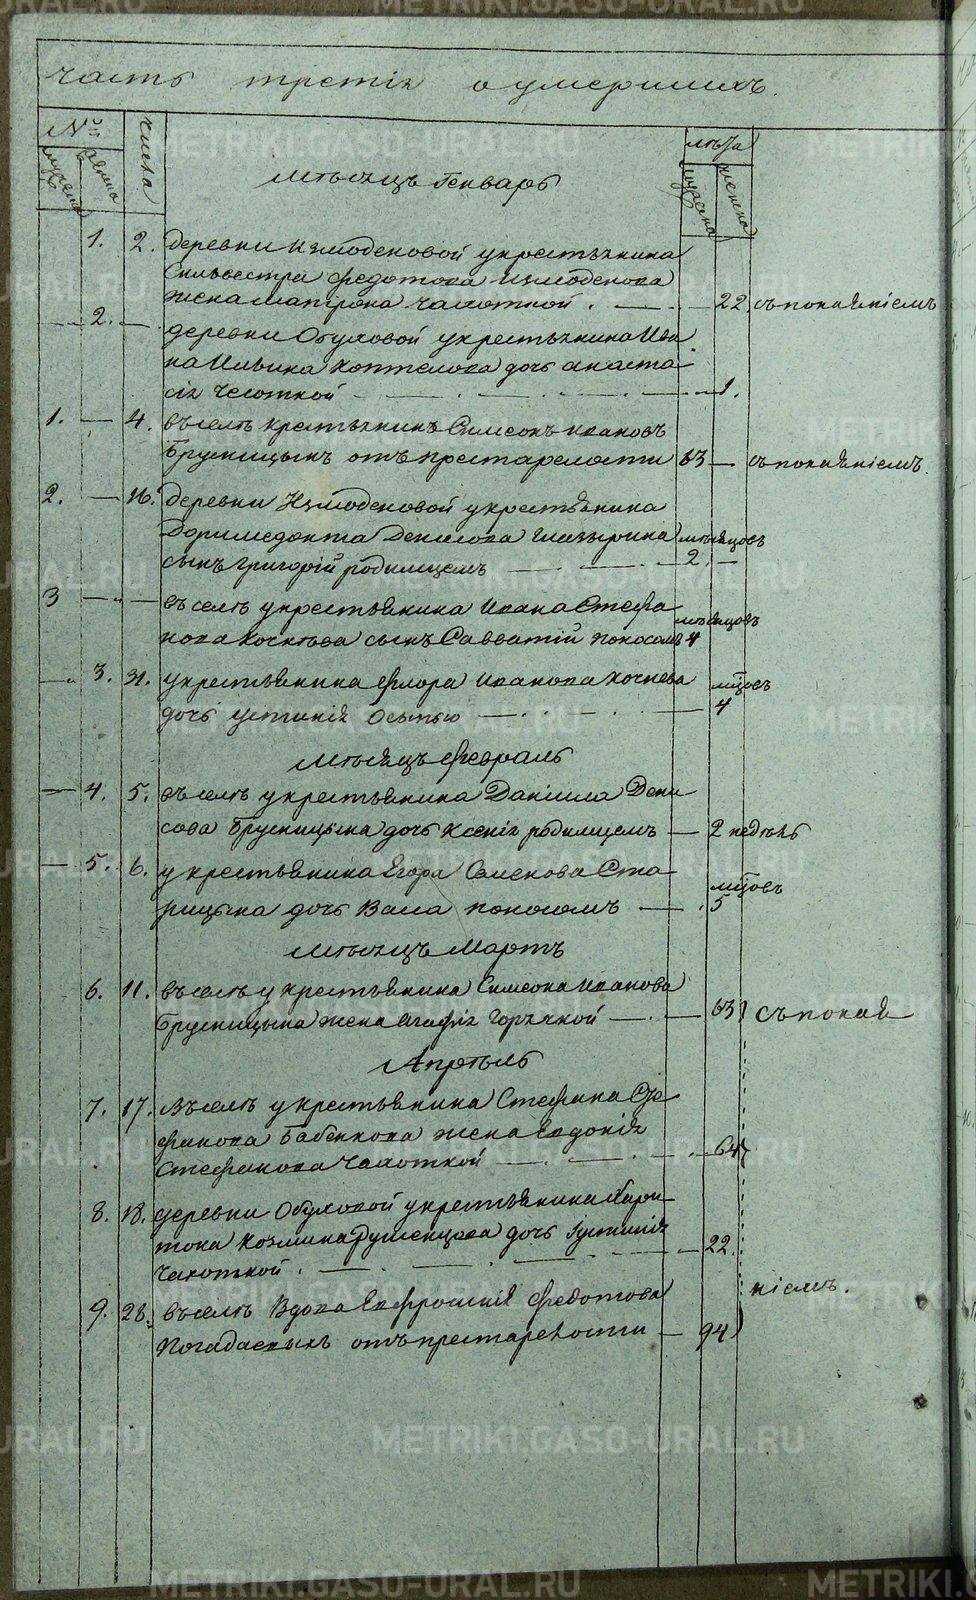 часть третія о умершихъ.
№
числа
лѣта
мужска
женска
мужска
женска
мѣсяцъ Генварь
1. 2. деревни Измоденовой у крестьянина
Сильвестра Федотова Измоденова
жена Матрона чахоткой. 22. съ покаяніемъ
2. деревни Обуховой у крестьянина Ива
на Ильина Коптелова дочь Анаста
сія чахоткой 1.
1. 4. въ селѣ крестьянинъ Симеонъ Ивановъ
Брусницынъ отъ престарелости 63 съ покаяніемъ.
2. 16. деревни Измоденовой у крестьянина
Доримедонта Денисова мѣсяцовъ
сынъ Григорій родимцемъ 2.
3 въ селѣ у крестьянина Ивана Стефа
нова Кочнева сынъ Савватій поносомъ мѣсяцовъ 4
3. 31. у крестьянина Флора Иванова Кочнева мцовъ
дочь Устинія Осыпью 4
мѣсяцъ Февраль
4. 5. въ селѣ у крестьянина Даніила Дени
сова Брусницына дочь Ксенія родимцемъ 2 недѣль
5. 6. у крестьянина Егора Семенова Ста
рицына дочь Васса поносомъ мцовъ 5
мѣсяцъ Мартъ
6. 11. въ селѣ у крестьянина Симеона Иванова
Брусницына жена Агафія Горячкой 63 съ покая
Апрѣль
7. 17. Въ селѣ у крестьянина Стефана Сте
фанова Бабенкова жена Евдокія
Стефанова чахоткой 64
8. 18. деревни Обуховой у крестьянина Хари
тона Козмина Румянцова дочь Іустинія
чахоткой. 22.
9. 28. въ селѣ Вдова Евфросинія Федотова
Погадаевыхъ отъ престарелости 94
ніемъ.
METRIKI.GASO-URAL.RU